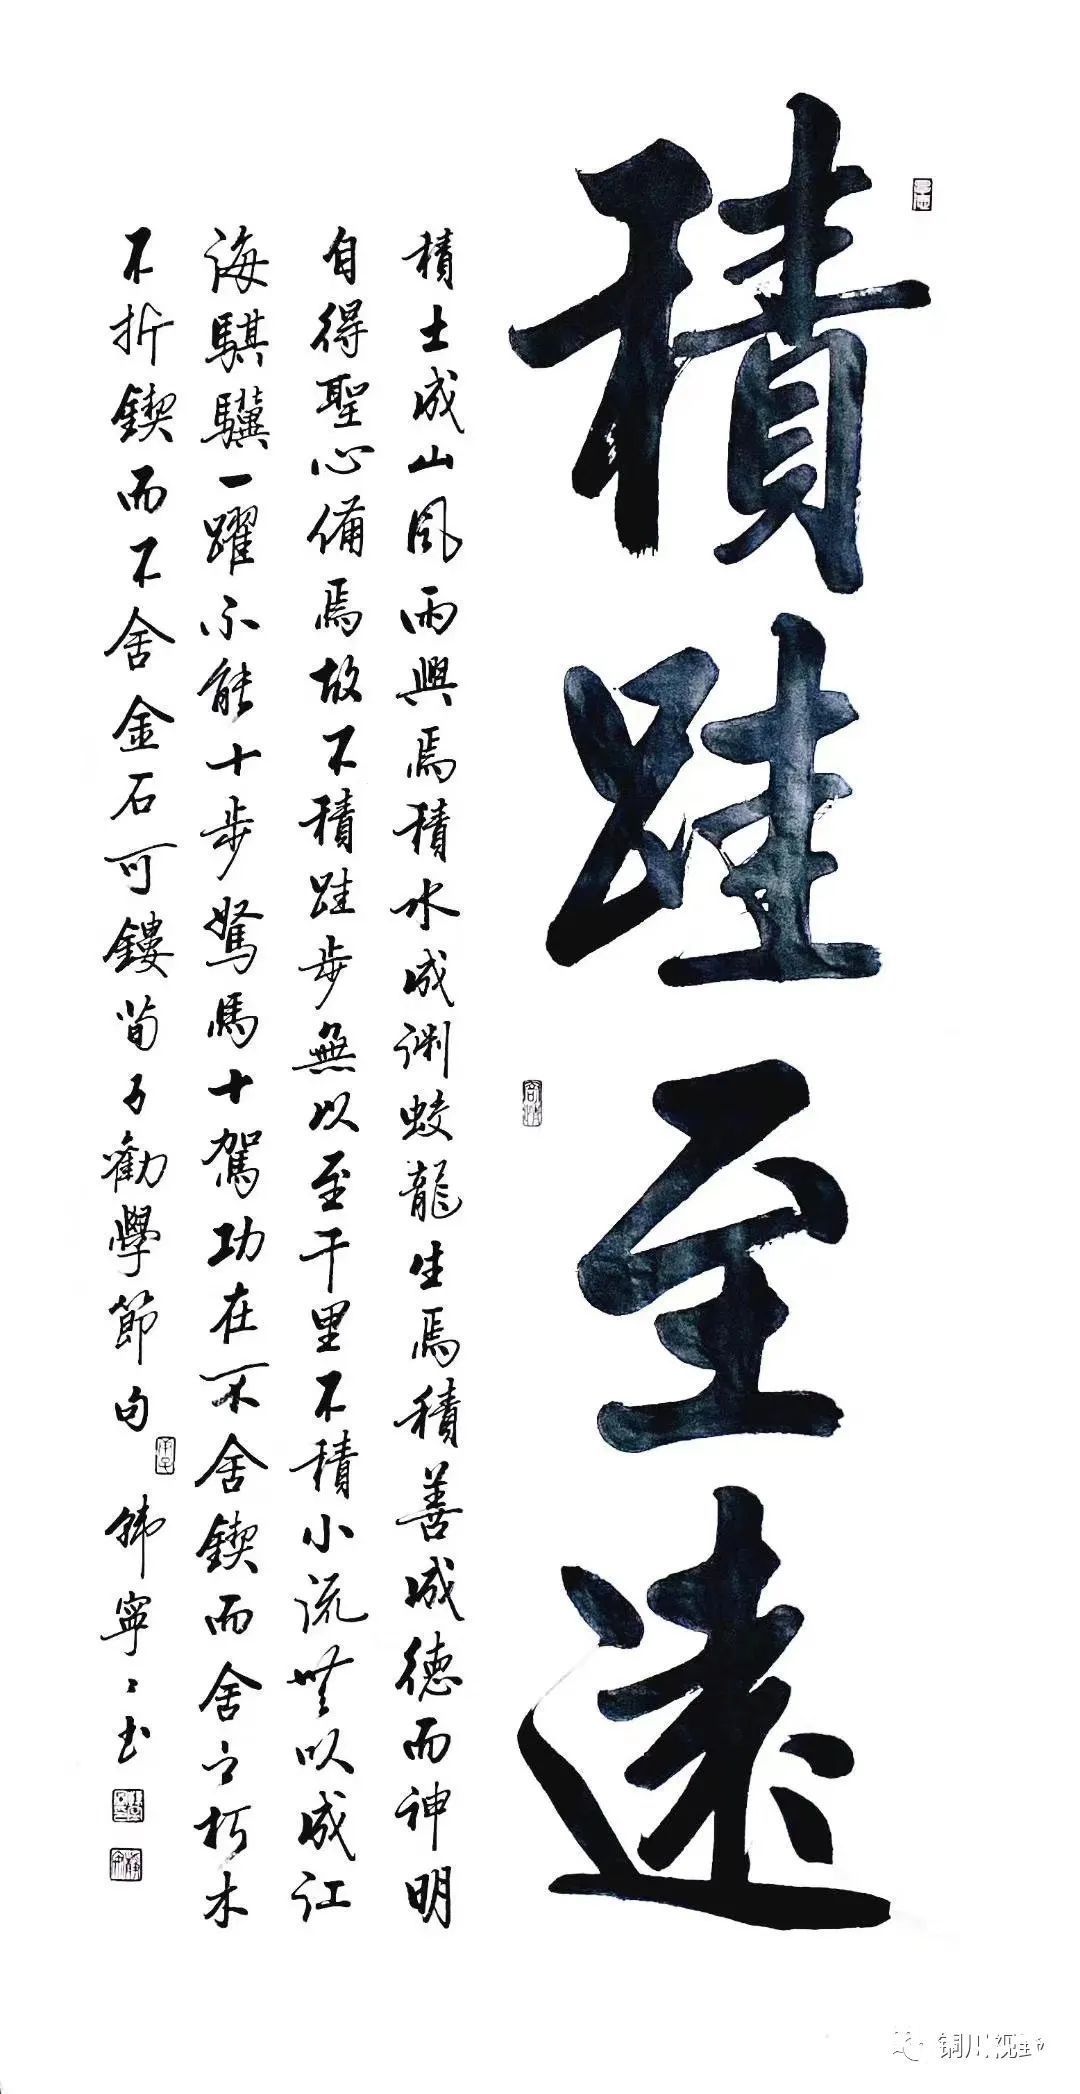 積跬至遠
積土成山風雨興焉積水成渊蛟龍生焉積善成德而神明
自得聖心備焉故不積跬步無以至千里不積小流無以成江
海騏驥一躍不能十步駑馬十駕功在不舍鍥而舍之朽木
不折鍥而不舍金石可鏤荀子勸學節句
寧
铜川视